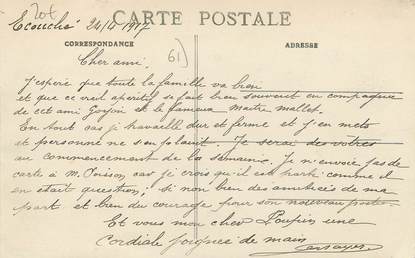 Lot
CARTE POSTALE
Ecouché 24/4 1917
61)
CORRESPONDANCE
ADRESSE
Cher ami.
J'espère que toute la famille va bien
et que ce vieil apéritif se fait bien souvent en compagnie
de cet ami et le fameux Maitre Mallet.
En tout cas j'travaille dur et ferme et j'en mets
et personne ne s'en plaint. Je serai des vôtres
au commencement de la semaine. Je n'envoie pas de
carte à M. Poisson car je crois qu'il est parti comme il
en était question, si non bien des amitiés de ma
part et bien du courage pour son nouveau poste.
Et vous mon cher Poupin une
cordiale poignée de main